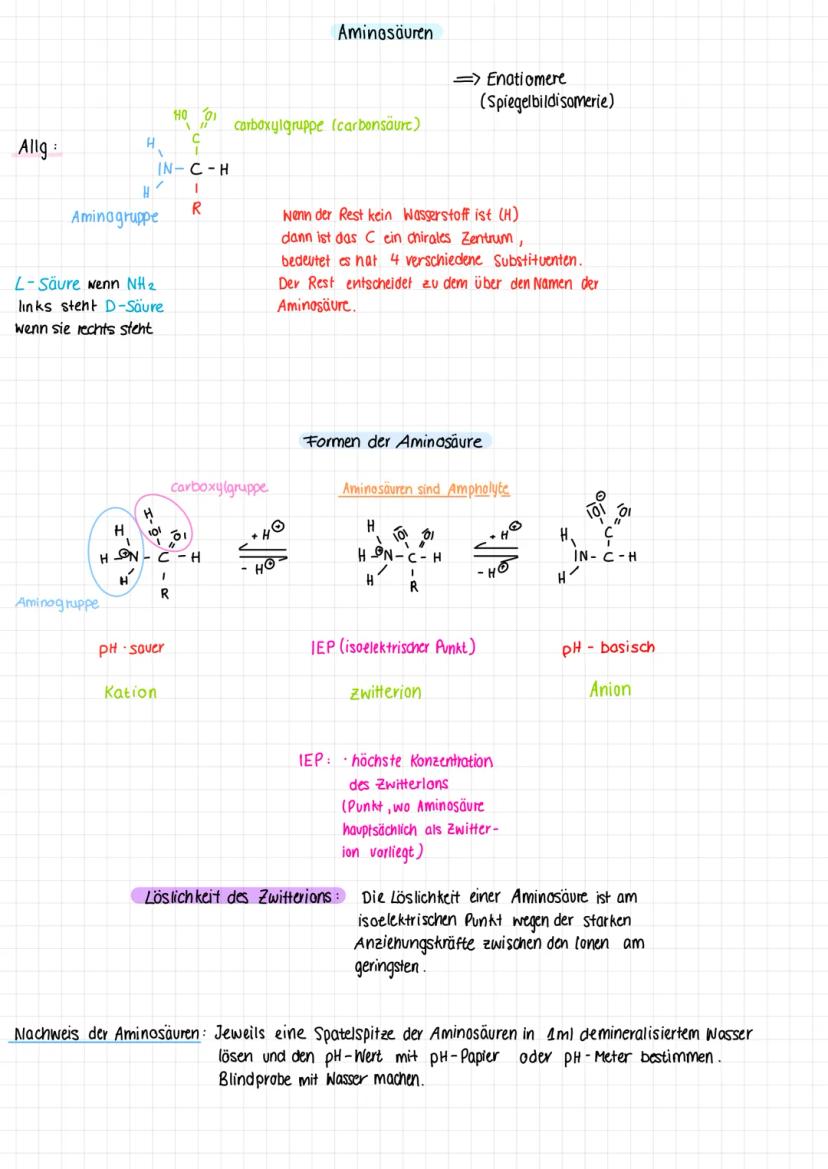 Aminosäuren
=> Enatiomere
(Spiegelbildisomerie)
HO IOI
carboxylgruppe (carbonsäure)
Allg :
H C
IN - C - H
H
Aminogruppe R
Wenn der Rest kein Wasserstoff ist (H)
dann ist das C ein chirales Zentrum,
bedeutet es hat 4 verschiedene Substituenten.
Der Rest entscheidet zu dem über den Namen der
Aminosäure.
L-Säure wenn NH2
links steht D-Säure
wenn sie rechts steht
Formen der Aminosäure
Carboxylgruppe
Aminosäuren sind Ampholyte
H
H IOI IOI
H - ⊕N - C - H
H
R
+ H⊕
- H⊕
H IOI IOI
H - ⊕N - C - H
H
R
+ H⊕
- H⊕
⊖
IOI IOI
H C
IN - C - H
H
Aminogruppe
pH - sauer IEP (isoelektrischer Punkt) pH - basisch
Kation Zwitterion Anion
IEP: · höchste Konzentration
des Zwitterions
(Punkt, wo Aminosäure
hauptsächlich als Zwitter-
ion vorliegt)
Löslichkeit des Zwitterions: Die Löslichkeit einer Aminosäure ist am
isoelektrischen Punkt wegen der starken
Anziehungskräfte zwischen den Ionen am
geringsten.
Nachweis der Aminosäuren: Jeweils eine Spatelspitze der Aminosäuren in 1ml demineralisiertem Wasser
lösen und den pH-Wert mit pH-Papier oder pH-Meter bestimmen.
Blindprobe mit Wasser machen.